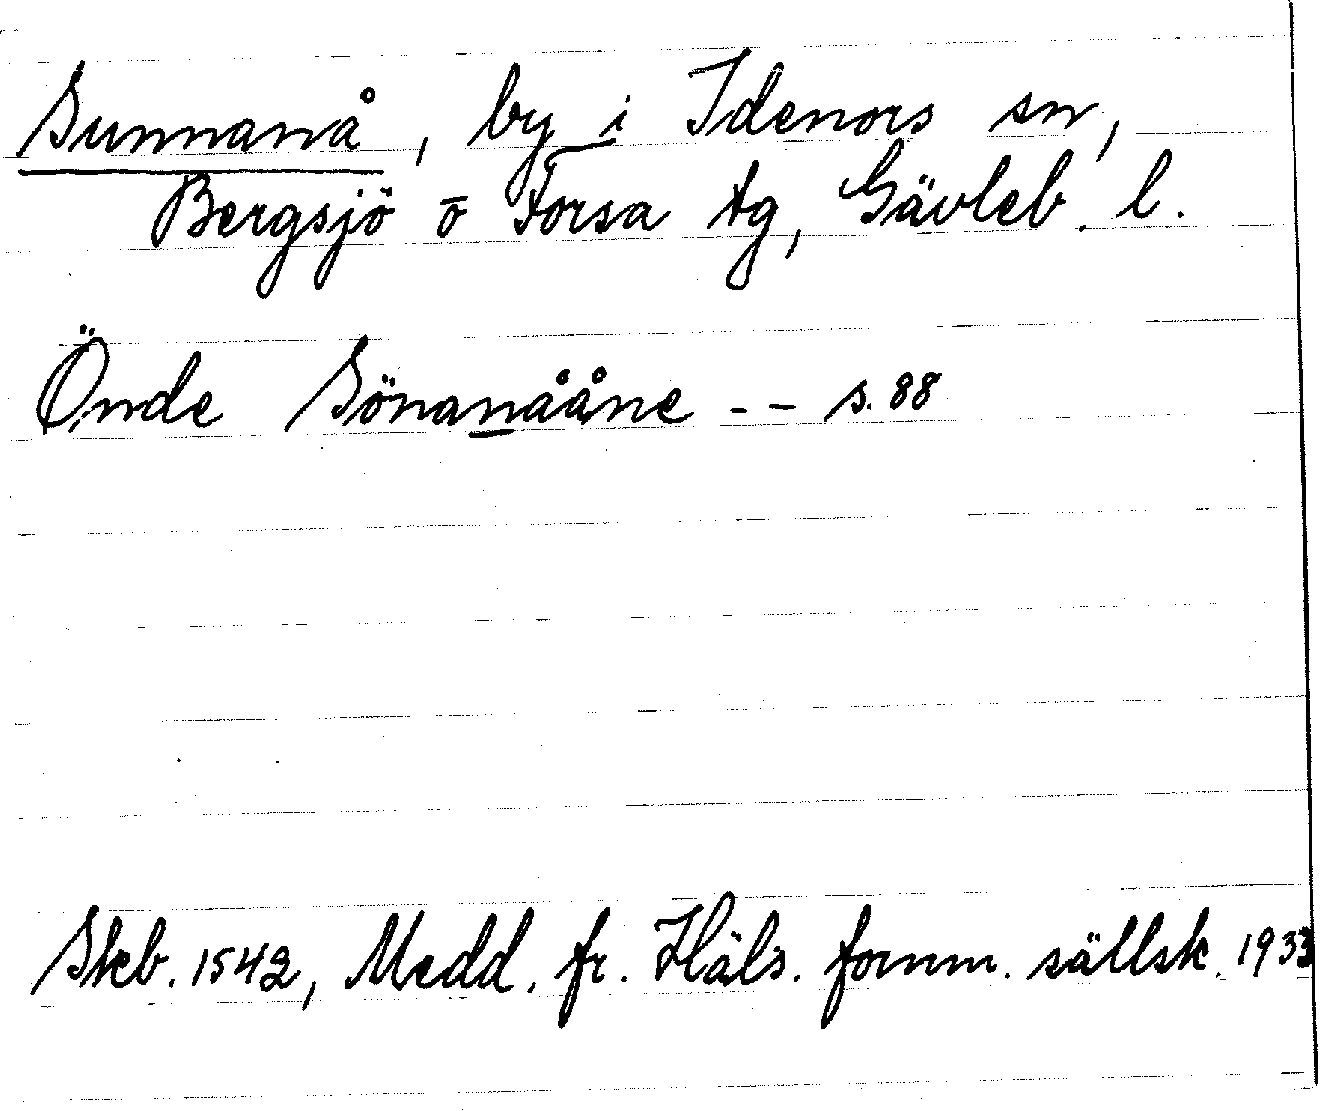 Sunnanå, by i Idenors sn,
Bergsjö o Forsa tg, Gävleb. l.
Önde Sönanååne -- s. 88
Skeb. 1542, Medd. fr. Häls. fornm. sällsk. 1933